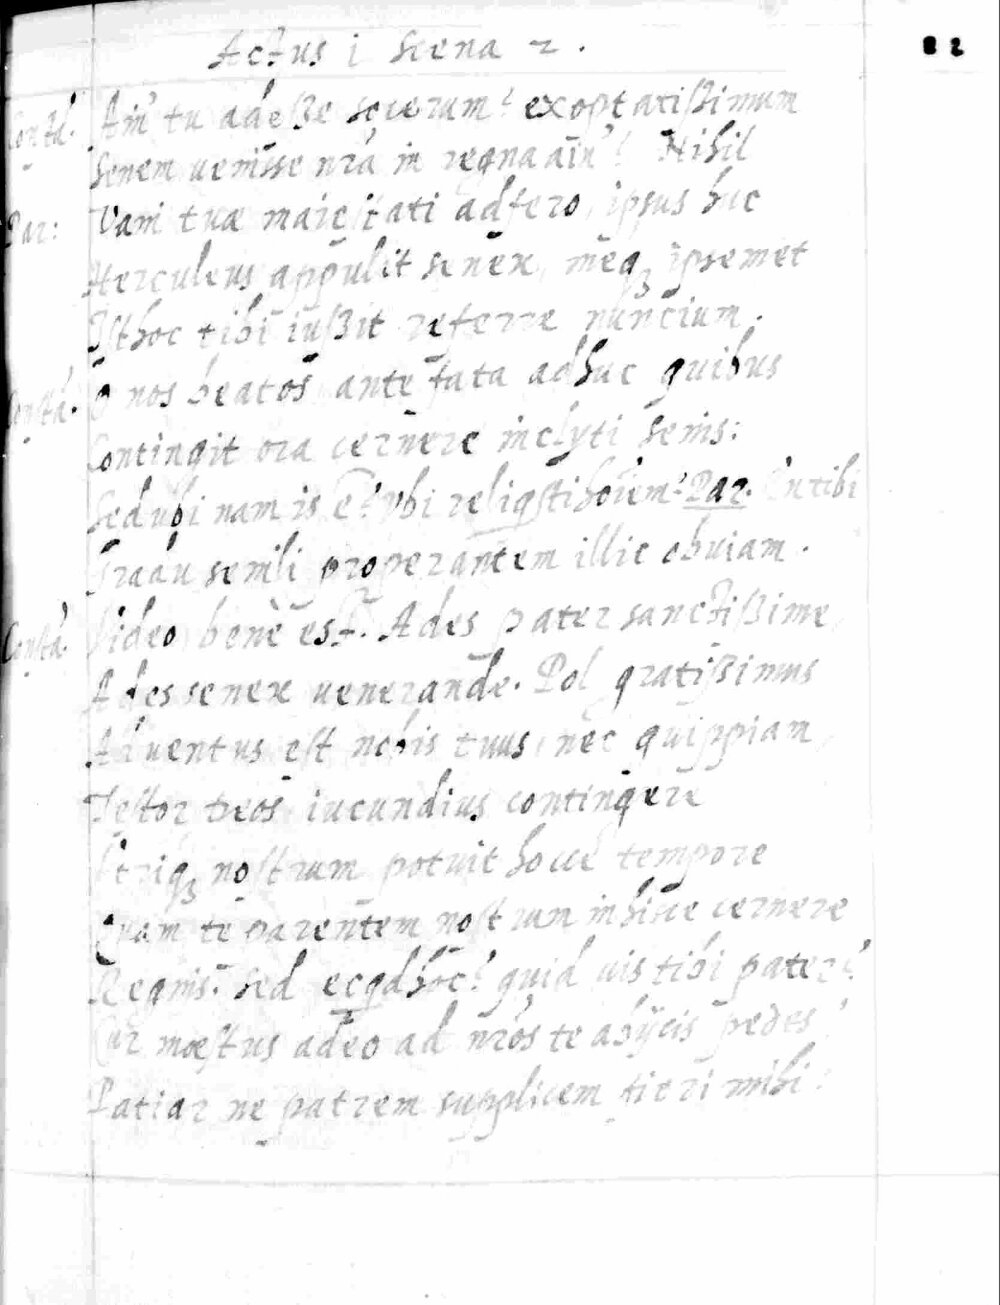 82
Actus i Scena 2.
Constā. Ain' tu adeße socerum? exoptatißimum
Senem uenisse nr̄a in regna ain'? Nihil
Par: Vani tuæ maiestati adfero, ipsus huc
Herculeus appulit senex, meq₃ ipsemet
Isthoc tibi iußit referre nuncium.
Constā. O nos beatos ante fata adhuc quibus
Contingit ora cernere inclyti senis:
Sed ubi nam is e? vbi Par. En tibi
Gradu semili properantem illic obuiam.
Constā. Video, benè est. Ades pater sanctißime,
Ades senex uenerande. Pol gratißimus
Aduentus est nobis tuus, nec quippiam
Testor deos iucundius contingere
Vtriq₃ nostrum potuit hocce tempore
Quam te parentem nostrum in hisce cernere
Regnis. Sed ecqd hoc? quid uis tibi pater?
Cur mœstus adeo ad nr̄os te abijcis pedes?
Patiar ne patrem supplicem fieri mihi?